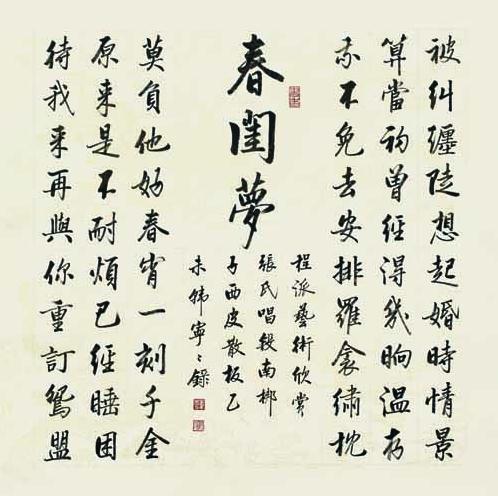 被糾纏陡想起婚時情景
算當初曾經得幾晌溫存
我不免去安排羅衾繡枕
春閨夢
程派藝術欣賞
張氏唱段南梆
子西皮散板乙
未韓寧々錄
莫負他好春宵一刻千金
原來是不耐煩已經睡困
待我來再與你重訂鴛盟